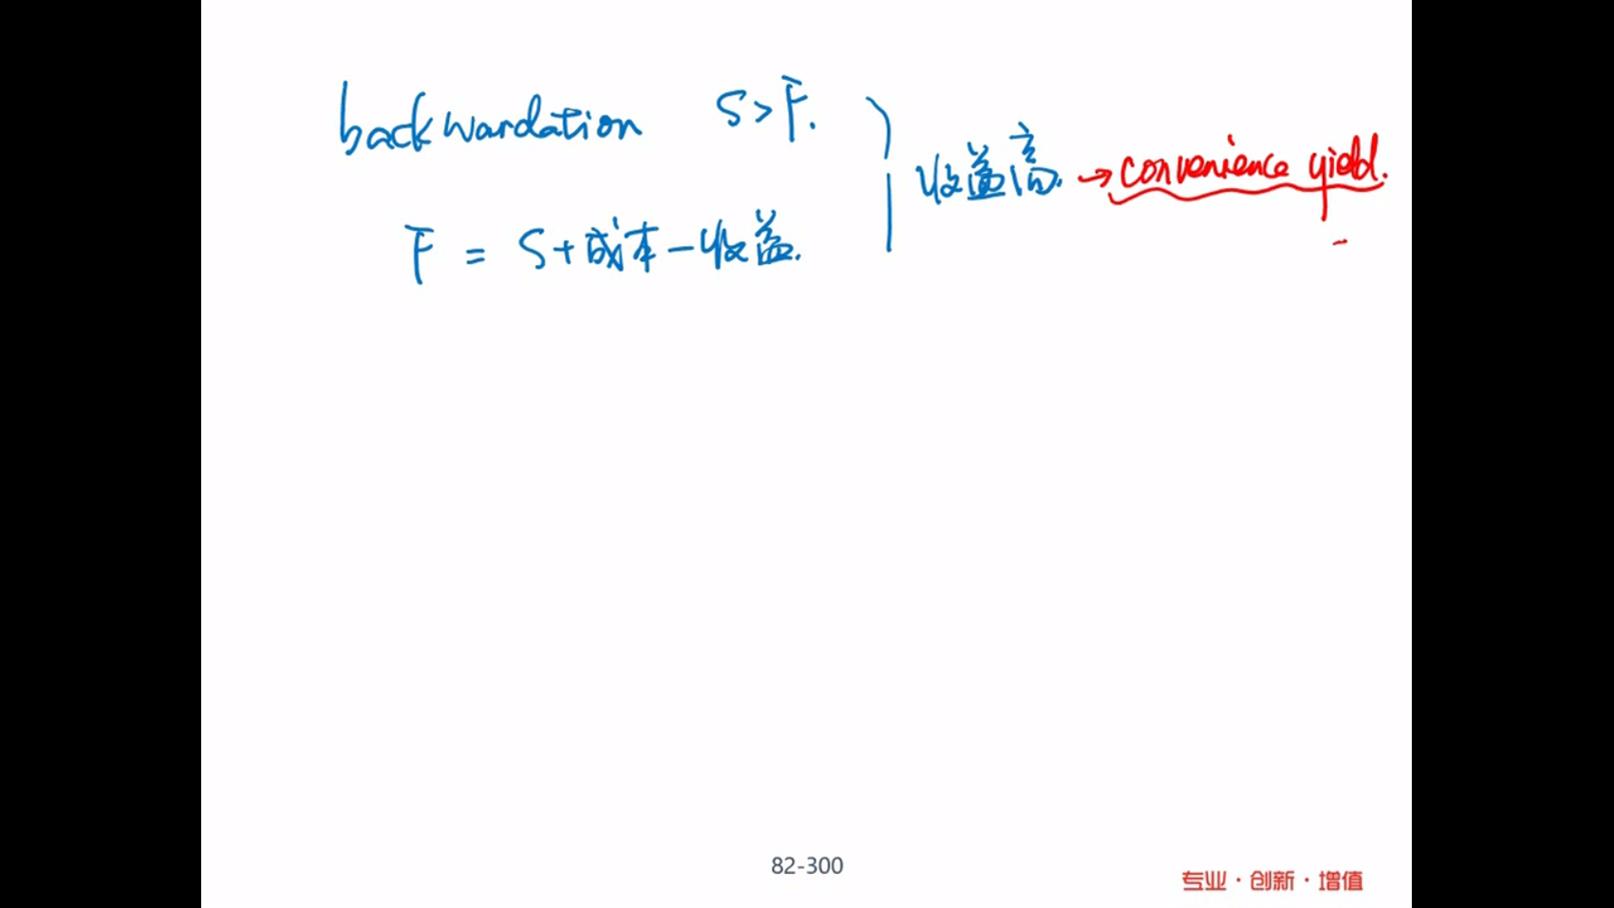 backwardation S>F.
收益高. → convenience yield.
F = S+成本-收益.
82-300
专业·创新·增值